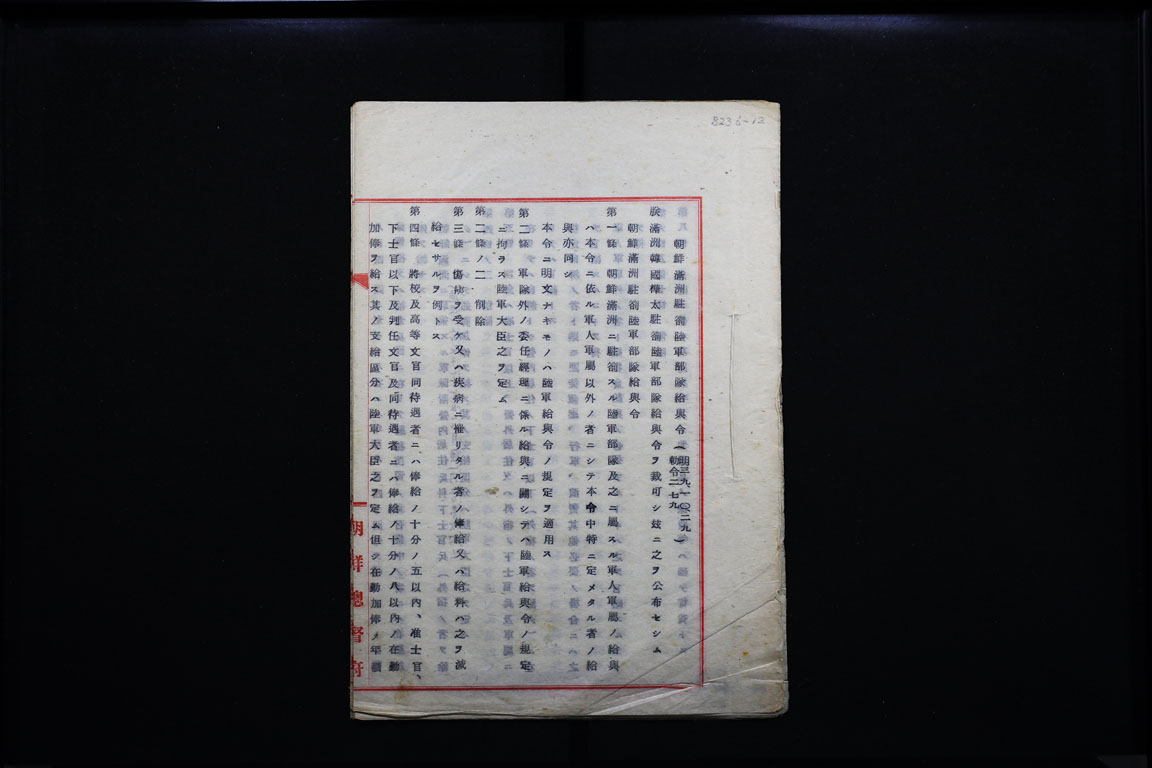 8236-12
朝鮮滿洲駐箚陸軍部隊給與令（明三九、一〇、二九）
勅令二七九
朕滿洲韓國樺太駐箚陸軍部隊給與令ヲ裁可シ玆ニ之ヲ公布セシム
朝鮮滿洲駐箚陸軍部隊給與令
第一條　朝鮮滿洲ニ駐箚スル陸軍部隊及之ニ屬スル軍人軍屬ノ給與
ハ本令ニ依ル軍人軍屬以外ノ者ニシテ本令中特ニ定メタル者ノ給
與亦同シ
本令ニ明文ナキモノハ陸軍給與令ノ規定ヲ適用ス
第二條　軍隊外ノ委任經理ニ係ル給與ニ關シテハ陸軍給與令ノ規定
ニ拘ラス陸軍大臣之ヲ定ム
第二條ノ二　削除
第三條　傷痍ヲ受ケ又ハ疾病ニ罹リタル者ノ俸給又ハ給料ハ之ヲ減
給セサルヲ例トス
第四條　將校及高等文官同待遇者ニハ俸給ノ十分ノ五以內、准士官、
下士官以下及判任文官及同待遇者ニハ俸給ノ十分ノ八以內ノ在勤
加俸ヲ給ス其ノ支給區分ハ陸軍大臣之ヲ定ム但シ在勤加俸ノ年額
朝鮮總督府